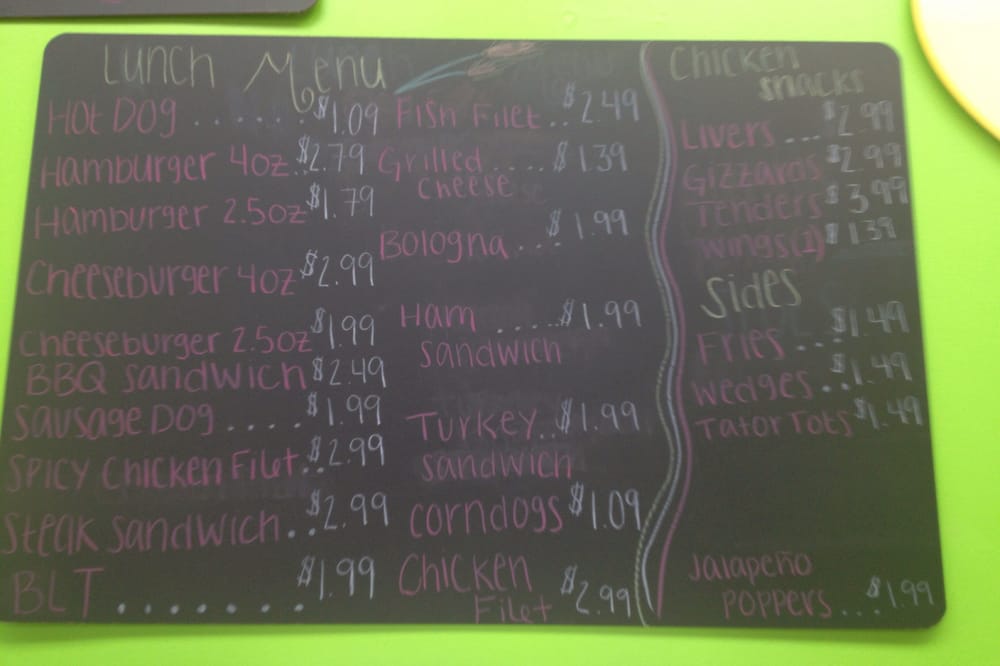 Lunch Menu
Hot Dog ...... $1.09
Hamburger 4oz.. $2.79
Hamburger 2.5oz $1.79
Cheeseburger 4oz $2.99
Cheeseburger 2.5oz $1.99
BBQ Sandwich $2.49
Sausage Dog ..... $1.99
Spicy Chicken Filet.. $2.99
Steak Sandwich.. $2.99
BLT ........ $1.99
Fish Filet.. $2.49
Grilled .... $1.39
Cheese
Bologna .... $1.99
Ham ..... $1.99
Sandwich
Turkey.. $1.99
Sandwich
corndogs $1.09
Chicken
Filet $2.99
Chicken
snacks
Livers ... $2.99
Gizzards $2.99
Tenders $3.99
Wings(2) $1.39
Sides
Fries ... $1.49
Wedges .. $1.49
Tator Tots $1.49
Jalapeño
Poppers... $1.99